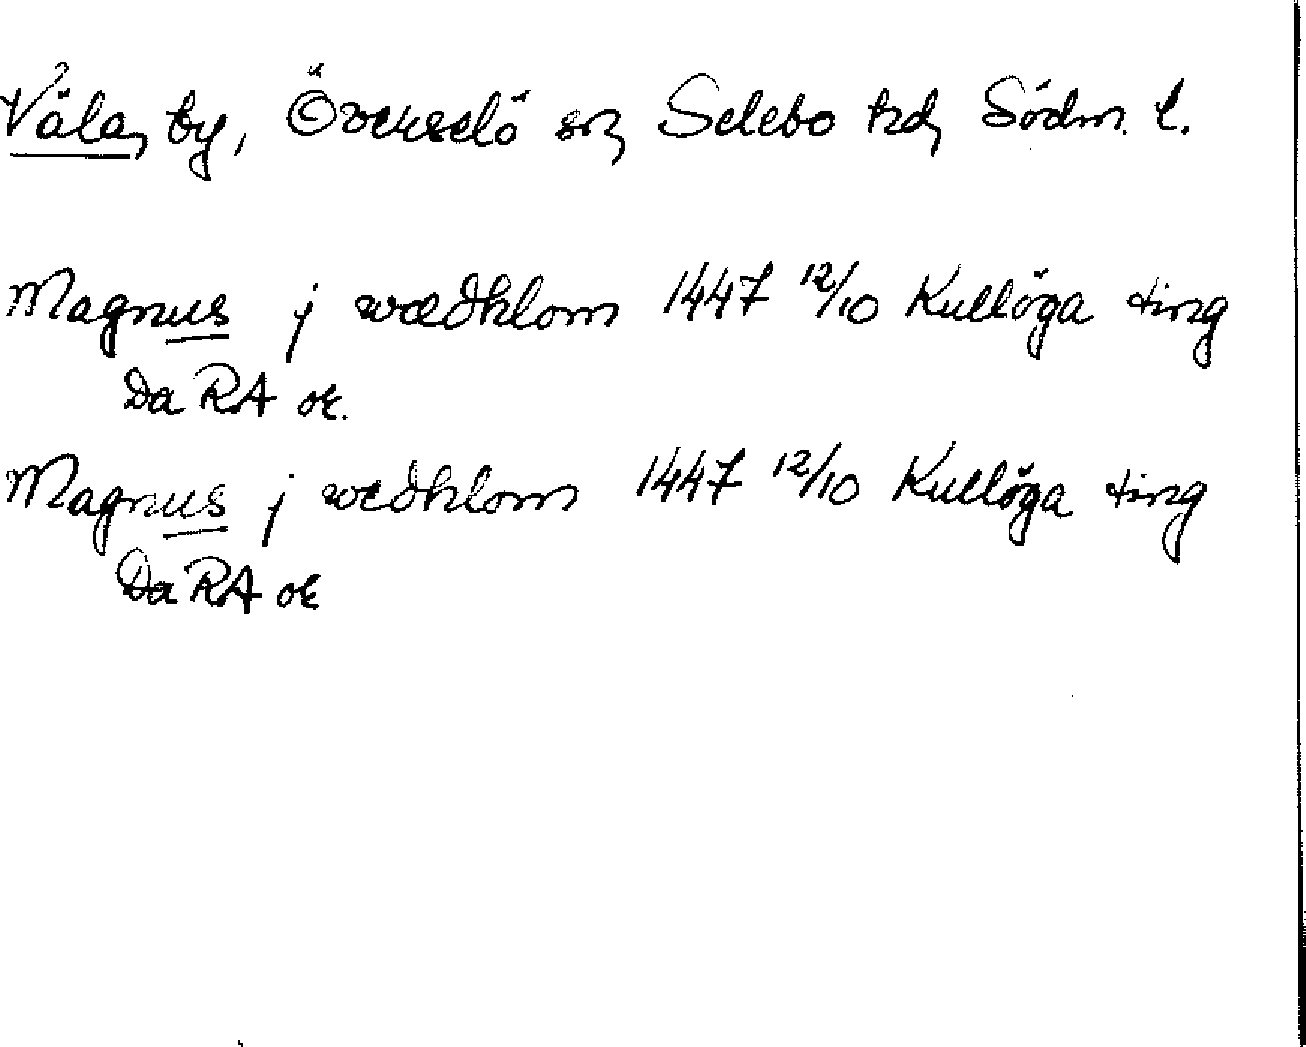 Våla, by, Överselö sn, Selebo hd, Södm. l.
Magnus j wædhlom 1447 12/10 Kullöga ting
Da RA or.
Magnus j wædhlom 1447 12/10 Kullöga ting
Da RA or